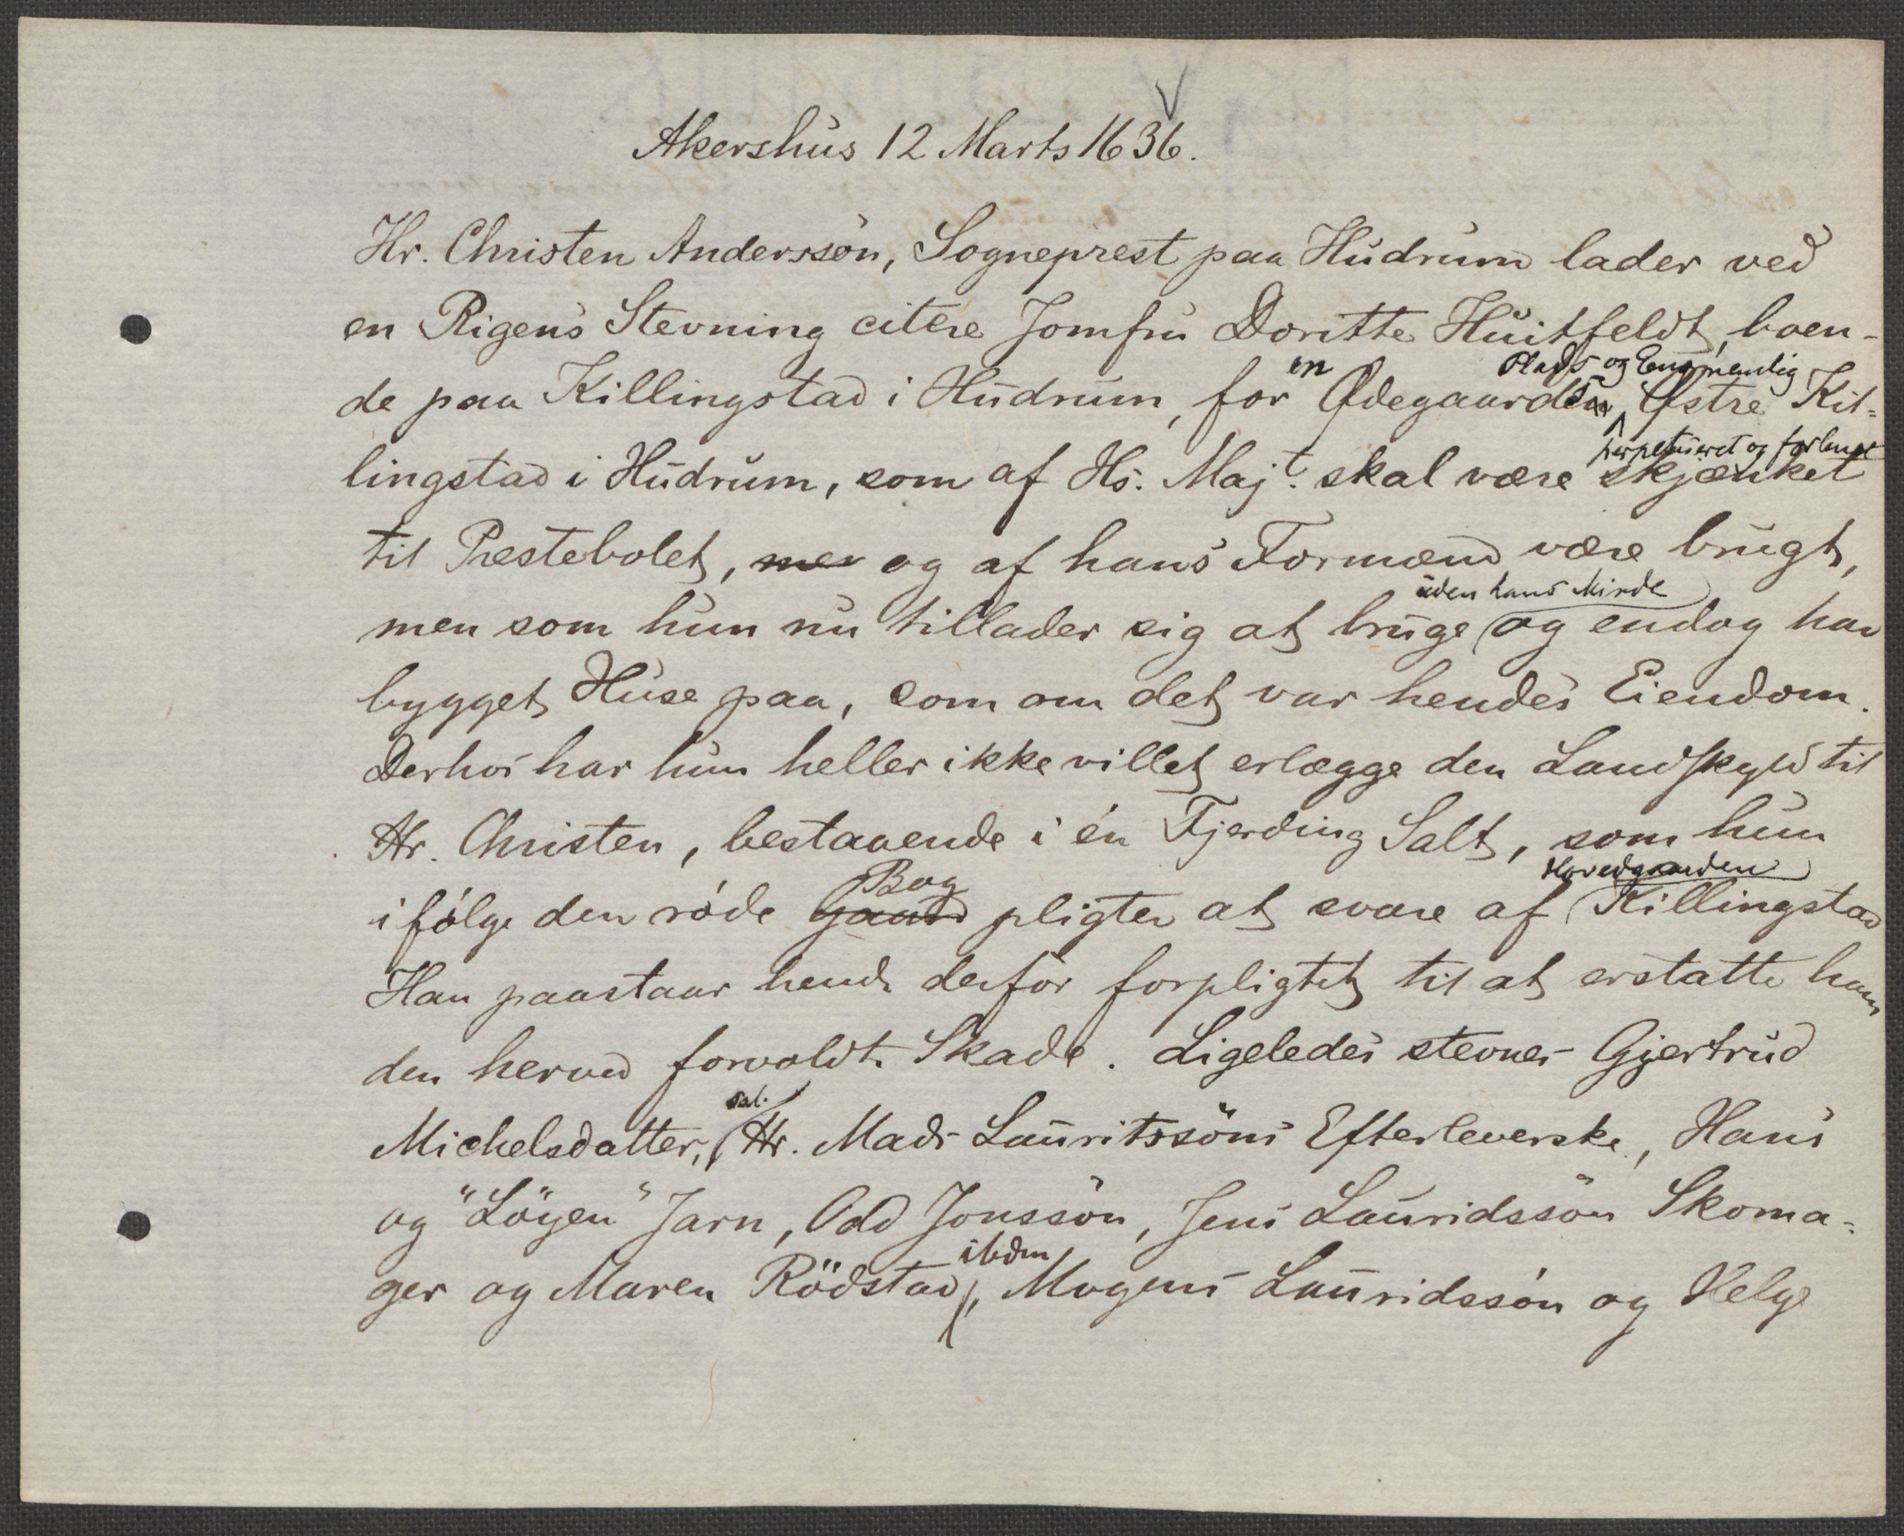 Akershus 12 Marts 1636.
Hr. Christen Anderssön, Sogneprest paa Hudrum lader ved
en Rigens Stevning citere Jomfru Doritte Huitfeldt, boen-
de paa Killingstad i Hudrum, for en Ødegaards Plads og Engemendig Østre Kil-
lingstad i Hudrum, som af Hs. Majt. skal være perpetueret og forlenet skjænket
til Prestebolet, men og af hans Formænd være brugt,
men som hun nu tillader sig at bruge uden hans Minde og endog har
bygget Huse paa, som om det var hendes Eiendom.
Derhos har hun heller ikke villet erlægge den Landskyld til
Hr. Christen, bestaaende i én Fjerding Salt, som hun
ifølge den røde Bog pligter at svare af Hovedgaarden Killingstad
Han paastaar hende derfor forpligtet til at erstatte ham
den herved forvoldte Skade. Ligeledes stevnes Gjertrud
Michelsdatter, sal. Hr. Mads Lauritssöns Efterleverske, Hans
og "Löyen" Jarn, Odd Jonssön, Jens Lauridssön Skoma-
ger og Maren Rödstad ibdm, Mogens Lauridssön og Helge